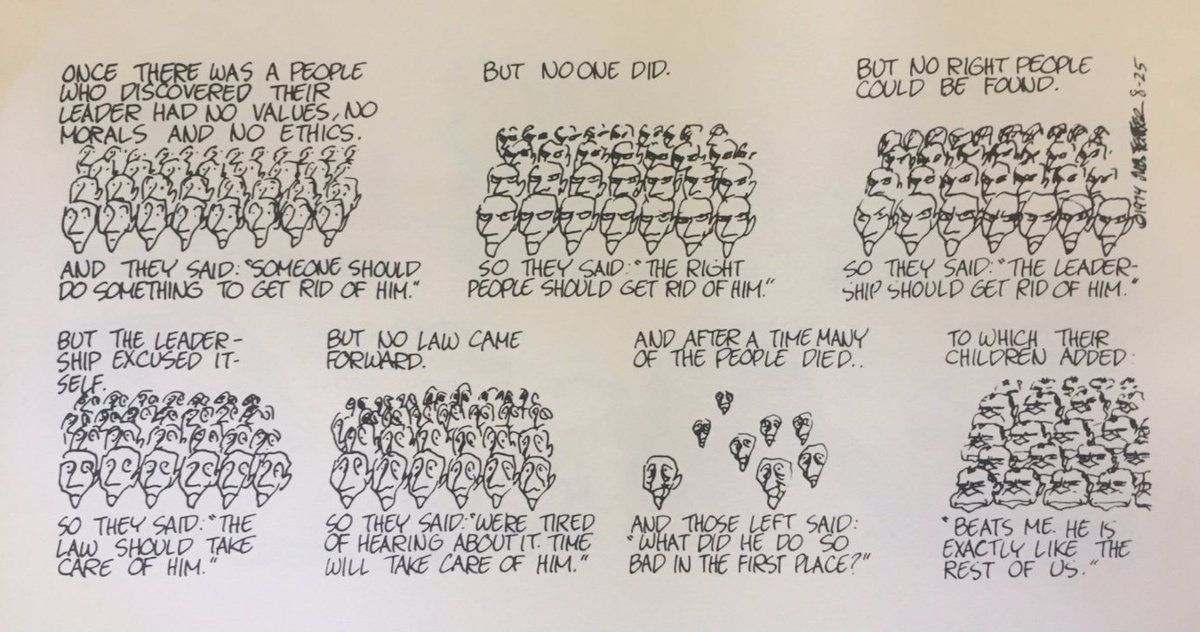 ONCE THERE WAS A PEOPLE
WHO DISCOVERED THEIR
LEADER HAD NO VALUES, NO
MORALS AND NO ETHICS.
AND THEY SAID: "SOMEONE SHOULD
DO SOMETHING TO GET RID OF HIM."
BUT NO ONE DID.
SO THEY SAID: "THE RIGHT
PEOPLE SHOULD GET RID OF HIM."
BUT NO RIGHT PEOPLE
COULD BE FOUND.
SO THEY SAID: "THE LEADER-
SHIP SHOULD GET RID OF HIM."
©1974 JULES FEIFFER 8-25
BUT THE LEADER-
SHIP EXCUSED IT-
SELF.
SO THEY SAID: "THE
LAW SHOULD TAKE
CARE OF HIM."
BUT NO LAW CAME
FORWARD.
SO THEY SAID: "WERE TIRED
OF HEARING ABOUT IT. TIME
WILL TAKE CARE OF HIM."
AND AFTER A TIME MANY
OF THE PEOPLE DIED..
AND THOSE LEFT SAID:
"WHAT DID HE DO SO
BAD IN THE FIRST PLACE?"
TO WHICH THEIR
CHILDREN ADDED:
"BEATS ME. HE IS
EXACTLY LIKE THE
REST OF US."